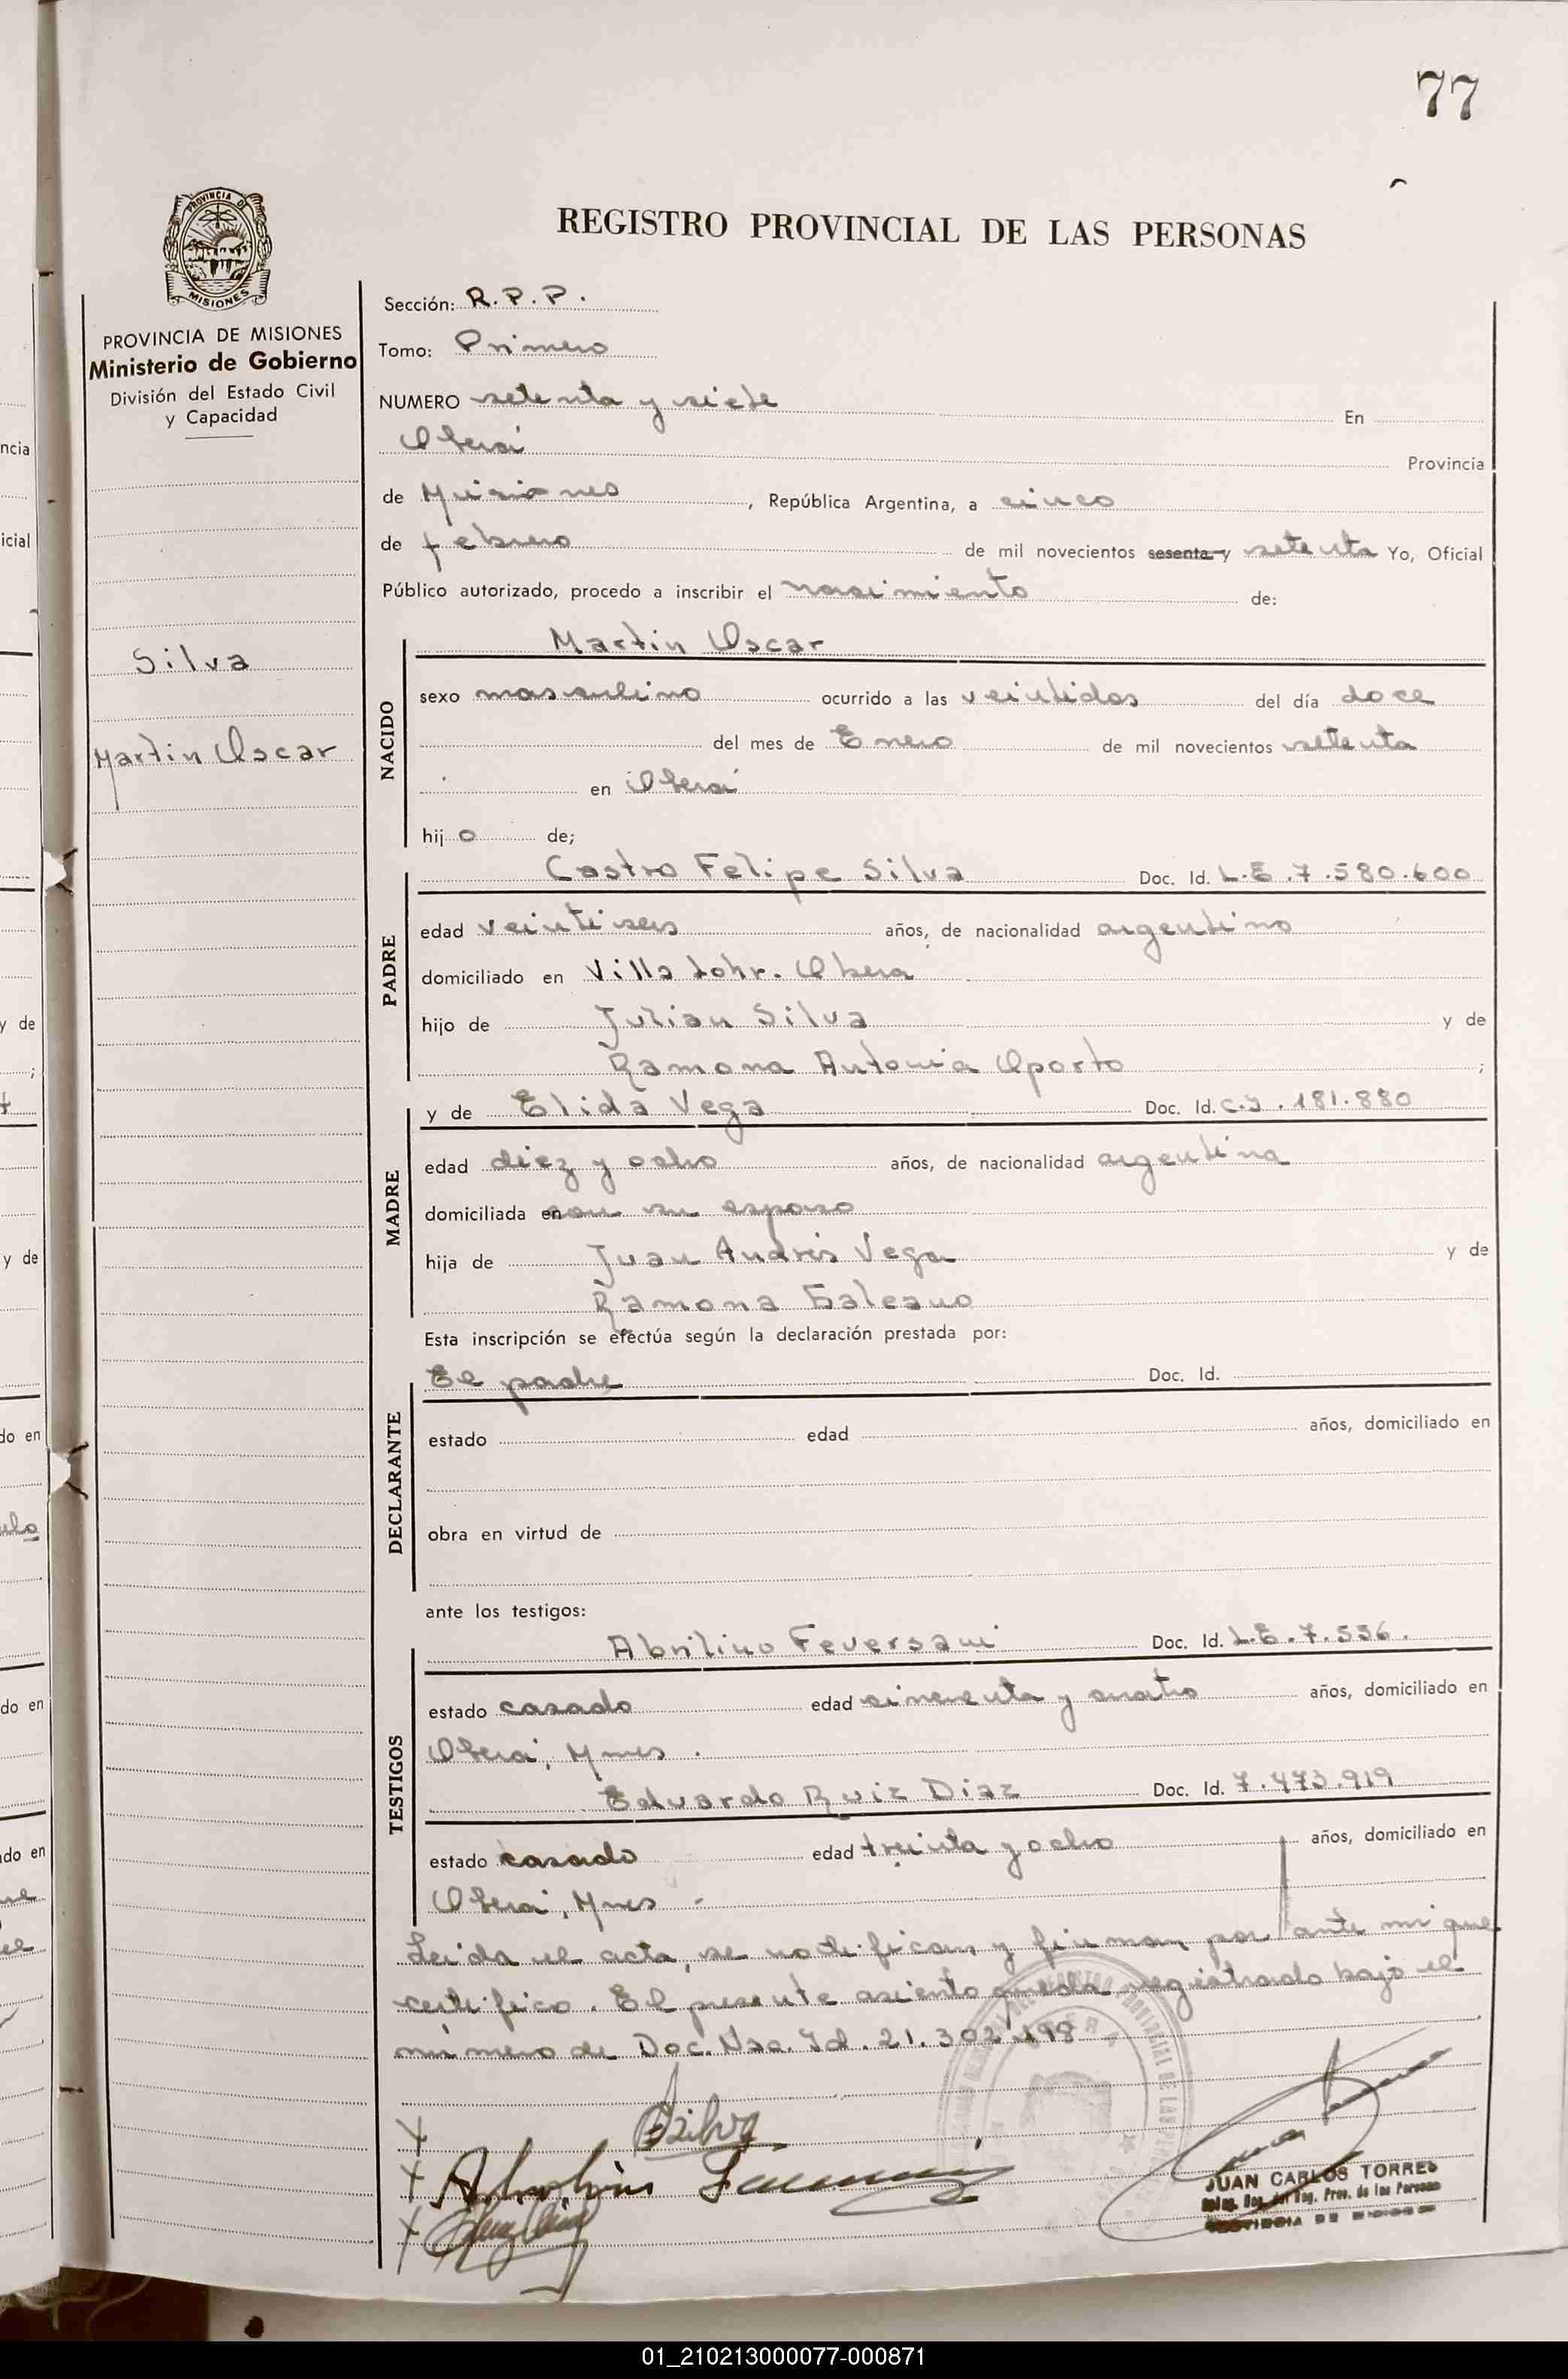 77
REGISTRO PROVINCIAL DE LAS PERSONAS
PROVINCIA DE
MISIONES
PROVINCIA DE MISIONES
Ministerio de Gobierno
División del Estado Civil
y Capacidad
Silva
Martin Oscar
Sección: R.P.P.
Tomo: Primero
NUMERO setenta y siete En
Oberá Provincia
de Misiones, República Argentina, a cinco
de febrero de mil novecientos sesenta y setenta Yo, Oficial
Público autorizado, procedo a inscribir el nacimiento de:
NACIDO
Martin Oscar
sexo masculino ocurrido a las veintidos del día doce
del mes de Enero de mil novecientos setenta
en Oberá
hij o de;
PADRE
Castro Felipe Silva Doc. Id. L.E. 7.580.600
edad veintiseis años, de nacionalidad argentino
domiciliado en Villa Lohr. Oberá
hijo de Julian Silva y de
Ramona Antonia Oporto ;
MADRE
y de Elida Vega Doc. Id. C.I. 181.880
edad diez y ocho años, de nacionalidad argentina
domiciliada en con su esposo
hija de Juan Andrés Vega y de
Ramona Galeano
Esta inscripción se efectúa según la declaración prestada por:
DECLARANTE
El padre Doc. Id.
estado edad años, domiciliado en
obra en virtud de
ante los testigos:
TESTIGOS
Abrilino Feversani Doc. Id. L.E. 7.556.
estado casado edad cincuenta y cuatro años, domiciliado en
Oberá, Mnes.
Eduardo Ruiz Diaz Doc. Id. 7.473.919
estado casado edad treinta y ocho años, domiciliado en
Oberá, Mnes -
Leida el acta, se notifican y firman por ante mi que
certifico. El presente asiento queda registrado bajo el
número de Doc. Nac. Id. 21.302.198
Silva
JUAN CARLOS TORRES
Reg. Prov. de las Personas
PROVINCIA DE MISIONES
01_210213000077-000871